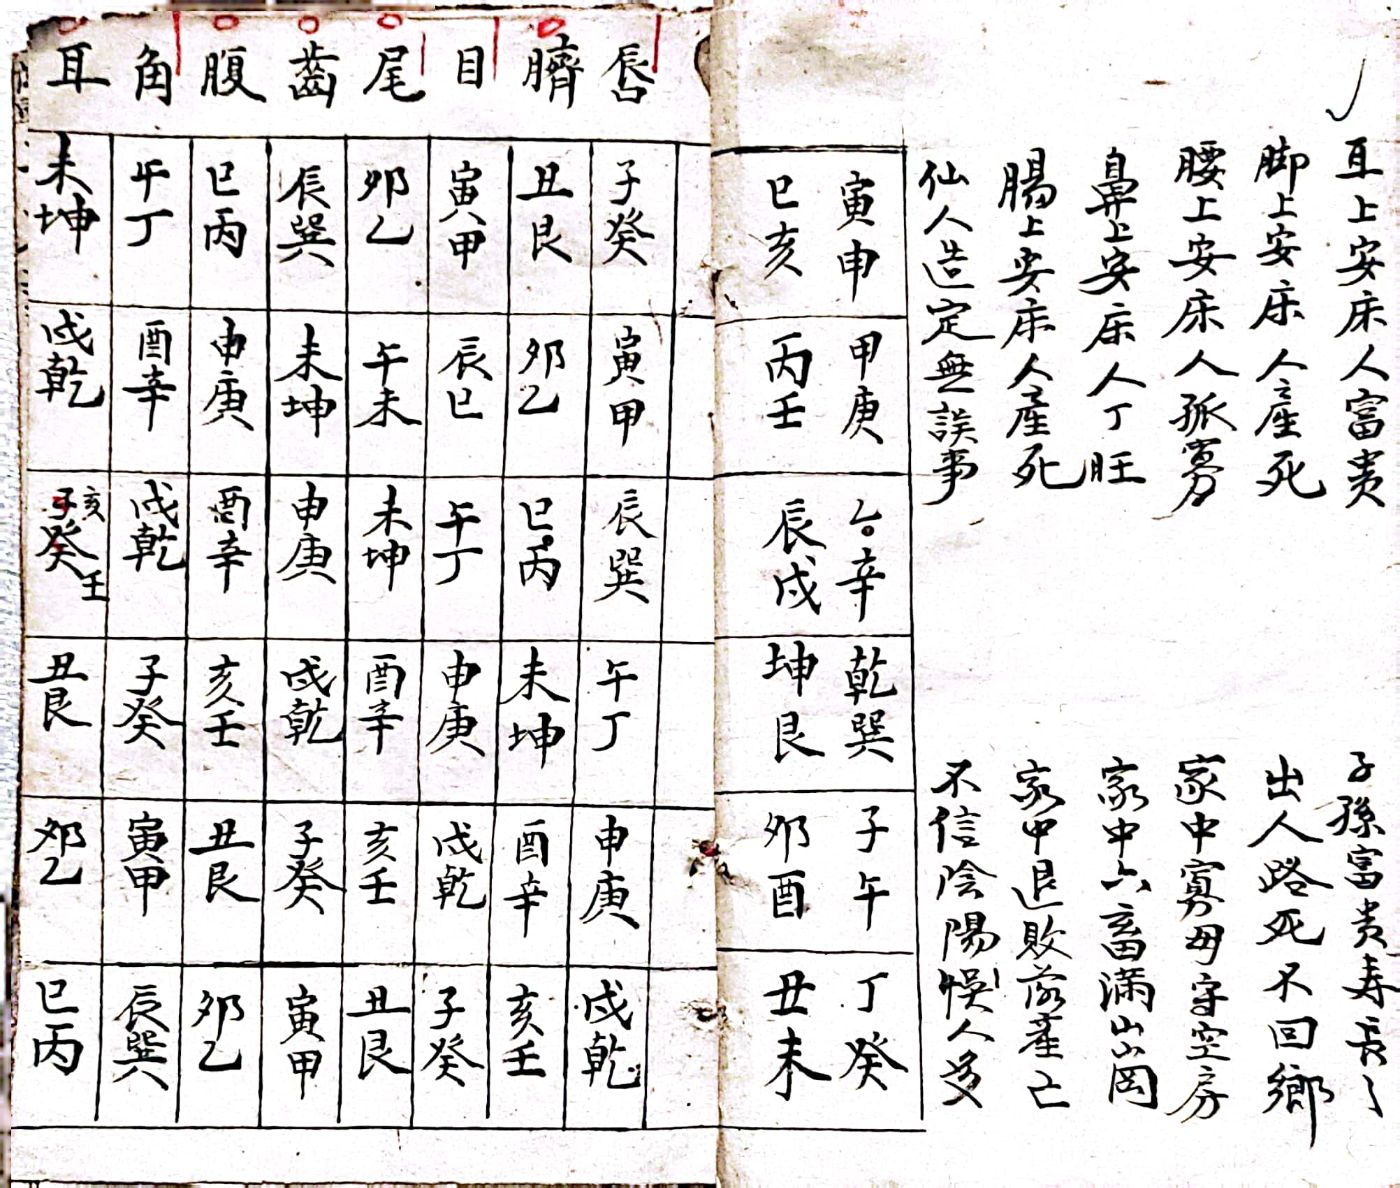 耳上安床人富贵 子孫富贵寿長々
脚上安床人產死 出人路死不回鄉
腰上安床人孤寡 家中寡母守空房
鼻上安床人丁旺 家中六畜满山岡
腸上安床人產死 家中退敗荡產亡
仙人造定無誤事 不信陰陽悮人多
寅申 甲庚 乙辛 乾巽 子午 丁癸
巳亥 丙壬 辰戌 坤艮 夘酉 丑未
唇 子癸 寅甲 辰巽 午丁 申庚 戌乾
臍 丑艮 夘乙 巳丙 未坤 酉辛 亥壬
目 寅甲 辰巳 午丁 申庚 戌乾 子癸
尾 夘乙 午未 未坤 酉辛 亥壬 丑艮
齒 辰巽 未坤 申庚 戌乾 子癸 寅甲
腹 巳丙 申庚 酉辛 亥壬 丑艮 夘乙
角 午丁 酉辛 戌乾 子癸 寅甲 辰巽
耳 未坤 戌乾 亥子癸壬 丑艮 夘乙 巳丙